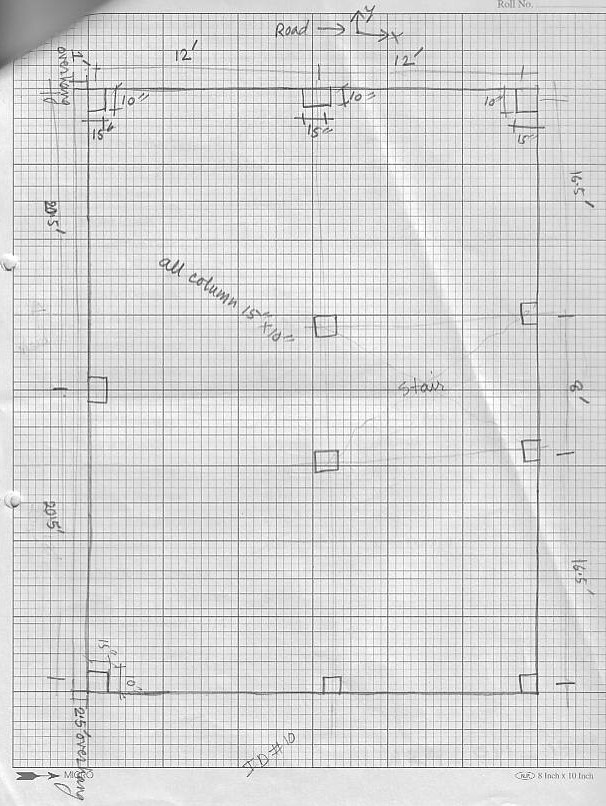 Roll No.
Road → Y
X
12'
12'
1'
overhang
10"
15"
10"
15"
10"
15"
20.5'
16.5'
all column 15"
x10"
stair
8'
20.5'
16.5'
15"
10"
2.5' overhang
ID#10
MICRO
8 Inch x 10 Inch